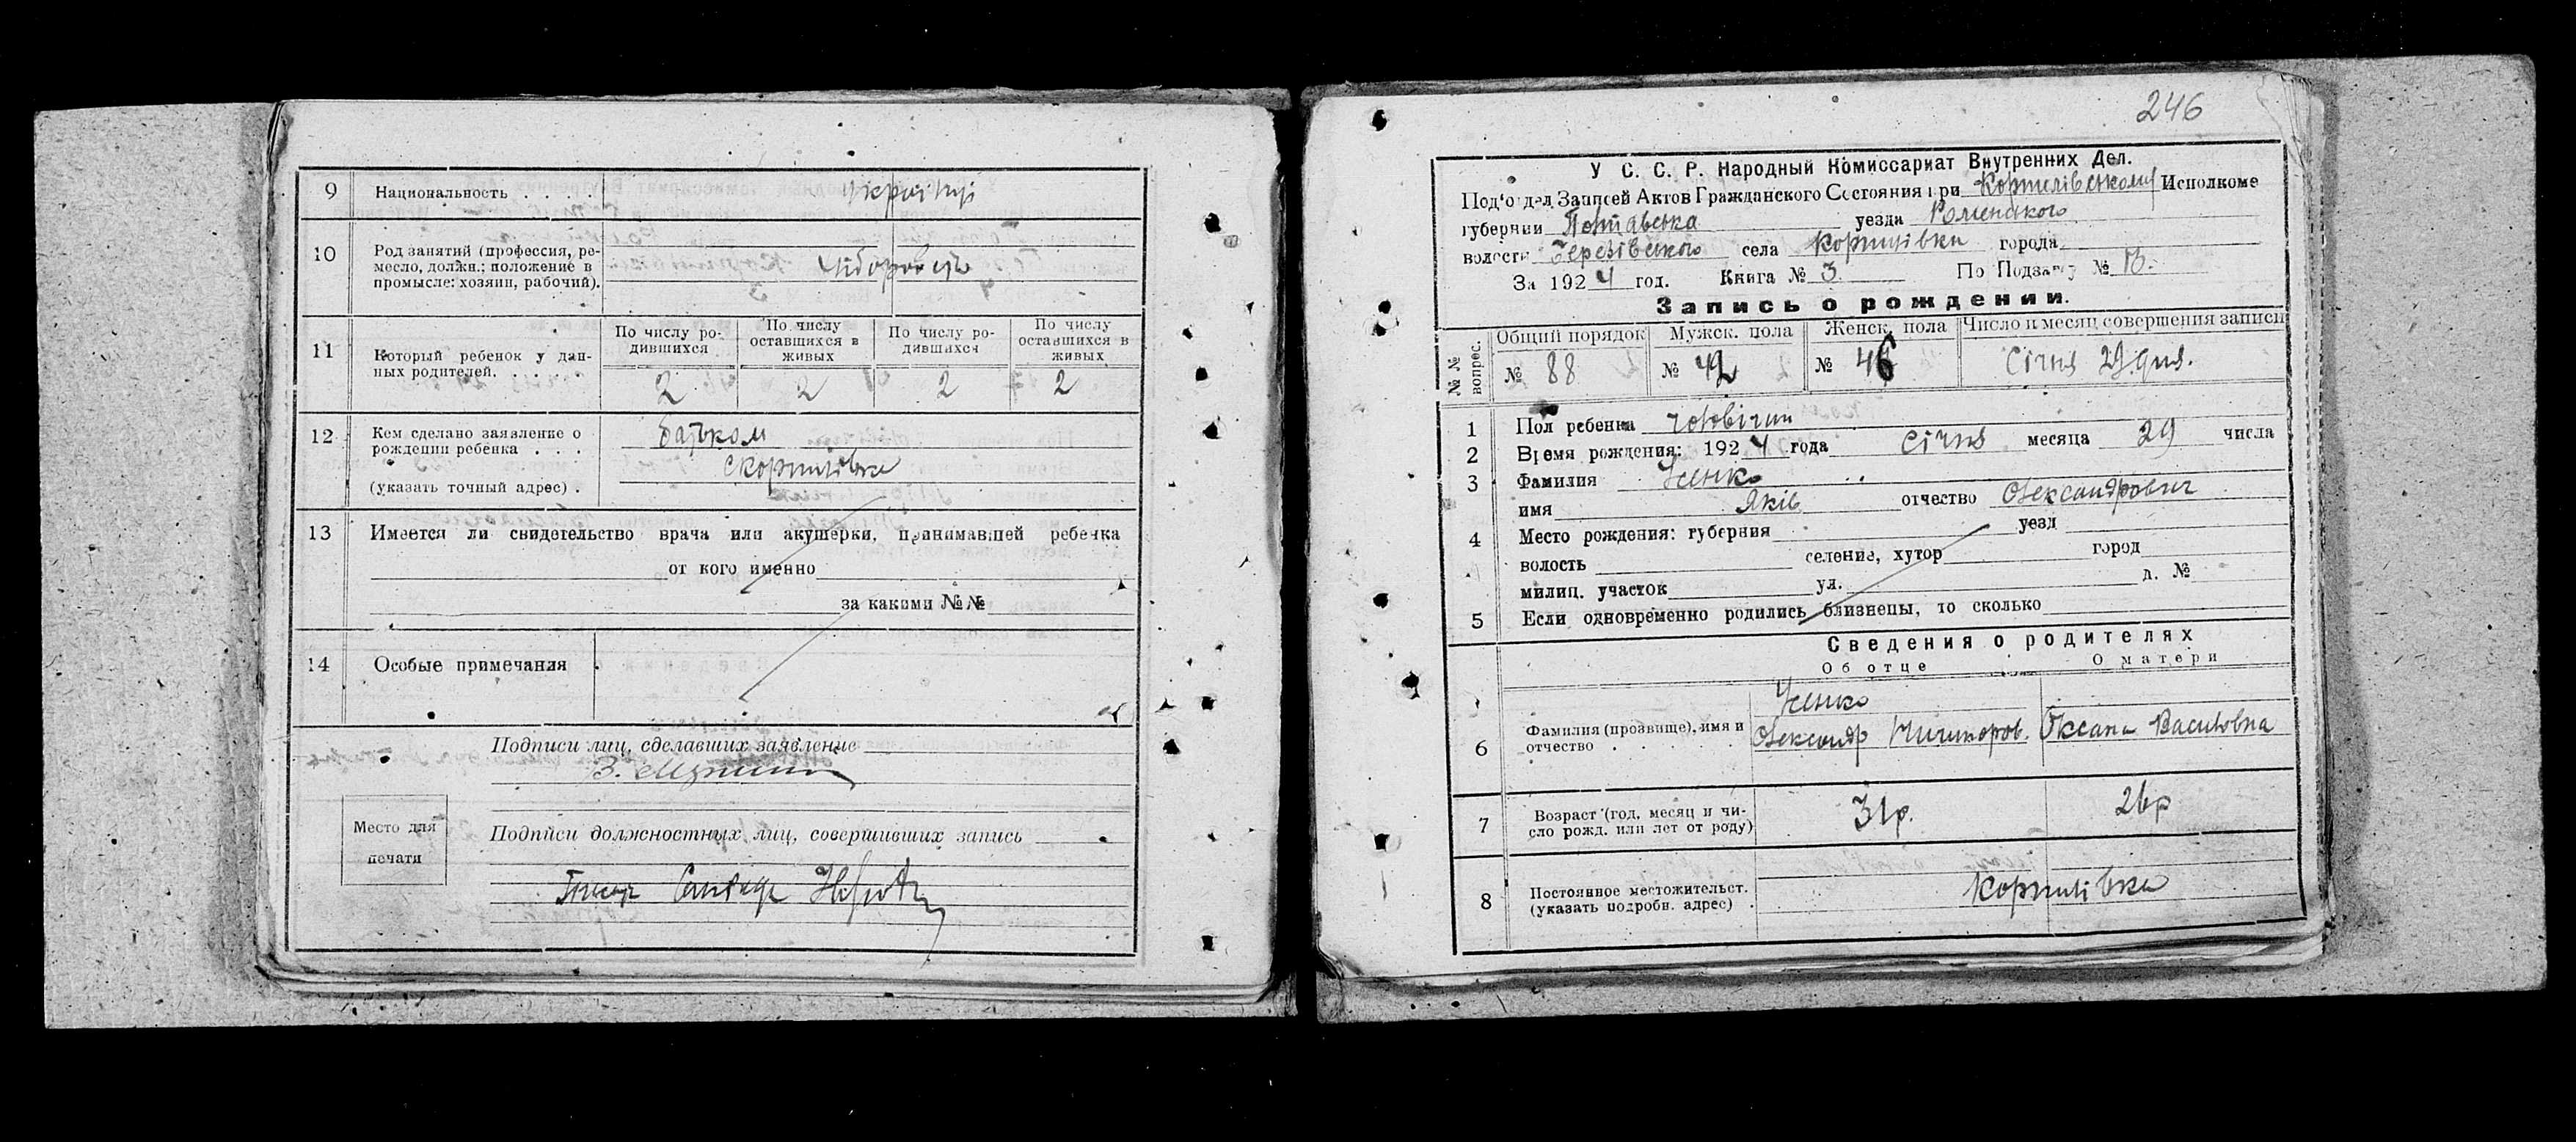 9 Национальность . . . . Українці
10 Род занятий (профессия, ре-
месло, должн.; положение в
промысле: хозяин, рабочий).
Хліборобець
11 Который ребенок у дан-
ных родителей. . . . . .
По числу ро-
дившихся
По числу
оставшихся в
живых
По числу ро-
дившихся
По числу
оставшихся в
живых
2 2 2 2
12 Кем сделано заявление о
рождении ребенка . . .
(указать точный адрес) .
батьком
с Коржилівка
13 Имеется ли свидетельство врача или акушерки, принимавшей ребенка
от кого именно
за какими №№
14 Особые примечания
Подписи лиц, сделавших заявление
З.
Подписи должностных лиц, совершивших запись
Место для
печати
246
У С. С. Р. Народный Комиссариат Внутренних Дел.
Под'отдел Записей Актов Гражданского Состояния при Исполкоме
губернии Полтавська уезда Роменського
волости Березівського села города
За 1924 год. Книга № 3. По Подзагу №
Запись о рождении.
№№ вопрос.
Общий порядок Мужск. пола Женск. пола Число и месяц совершения записи
№ 88 № 42 № 46 Січня 29 дня.
1 Пол ребенка чоловічий
2 Время рождения: 1924 года Січня месяца 29 числа
3 Фамилия Усенко
имя Яків отчество Олександрович
4 Место рождения: губерния уезд
волость селение, хутор город
милиц. участок ул. д. №
5 Если одновременно родились близнецы, то сколько
Сведения о родителях
Об отце О матери
6 Фамилия (прозвище), имя и
отчество . . . . . .
Усенко
Олександр Ничипоров. Оксана Василовна
7 Возраст (год, месяц и чи-
сло рожд. или лет от роду)
31р. 26р
8 Постоянное местожительст.
(указать подробн. адрес) .